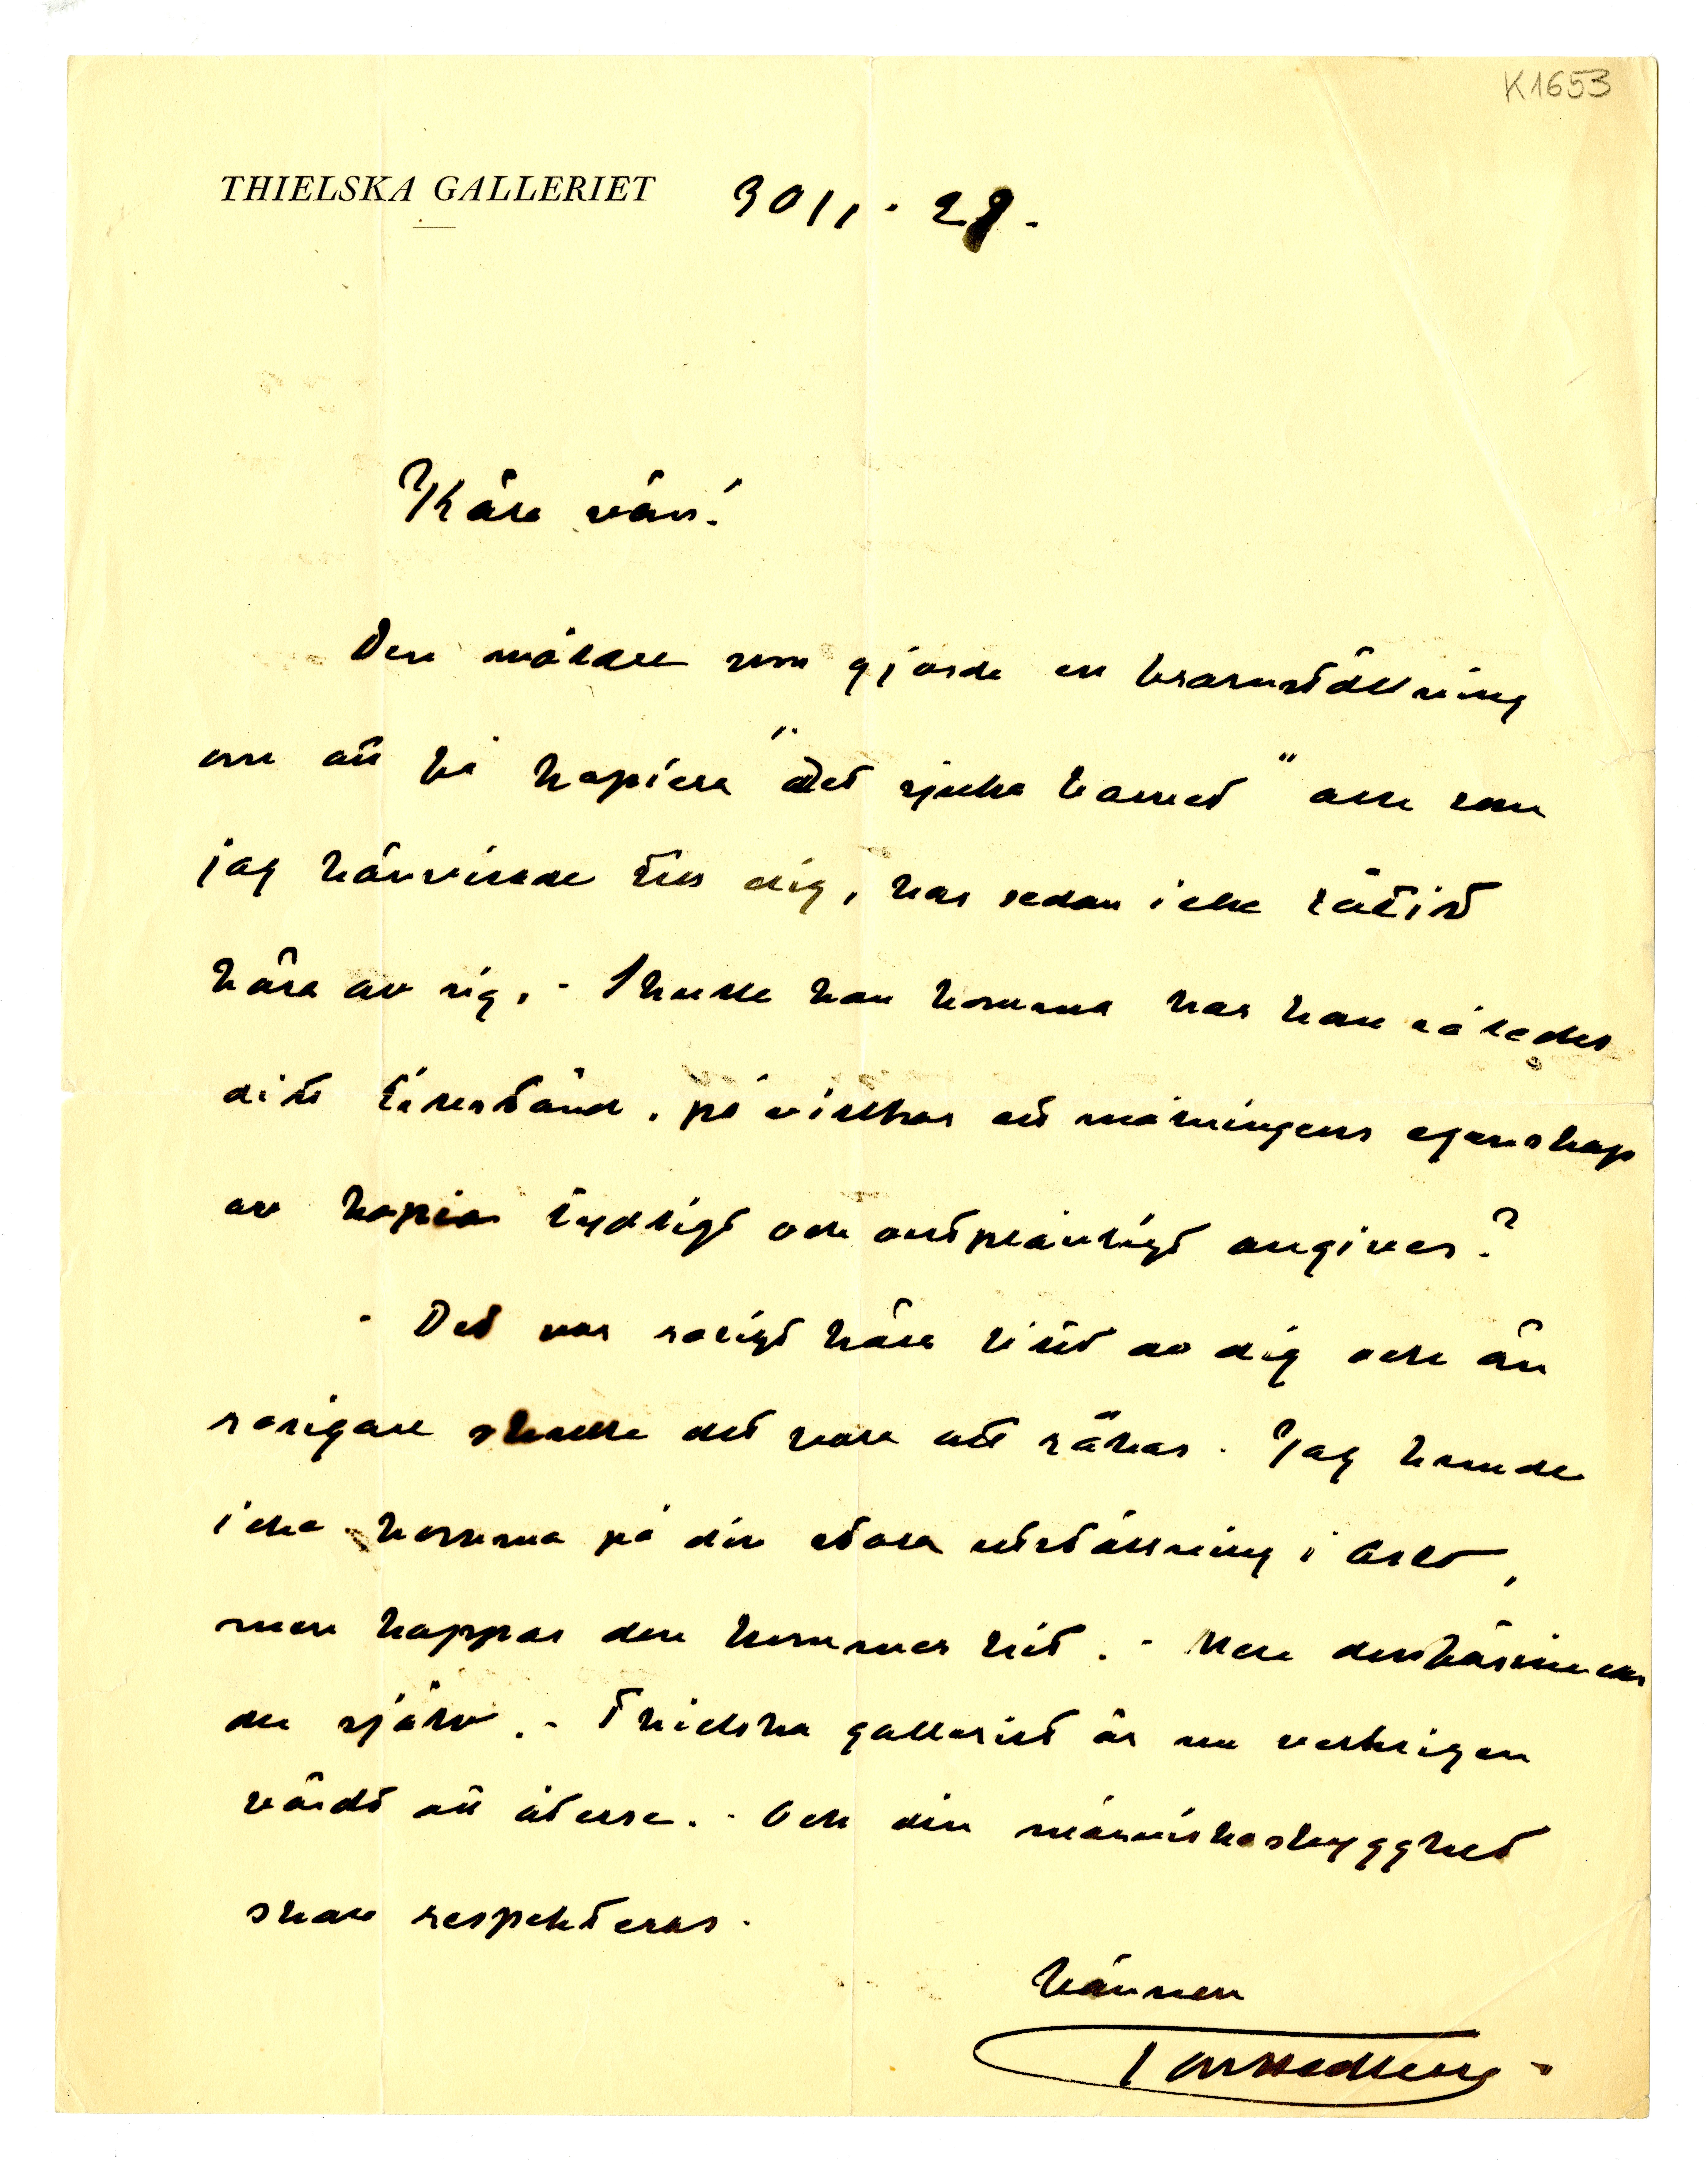 K1653
THIELSKA GALLERIET 30/1.-28.
Käre vän!
Den målare som gjorde en framställning
om att få kopiera "det sjuka barnet" och som
jag hänvisade till dig, har sedan icke låtit
höra av sig. - Skulle han komma har han således
ditt tillstånd, på villkor att målningens egenskap
av kopia tydligt och outplånligt angives?
- Det var roligt höra litet av dig och än
roligare skulle det vara att råkas. Jag kunde
icke komma på din stora utställning i Oslo,
men hoppas den kommer hit. - Men
du själv. - Thielska galleriet är nu verkligen
värdt att återse. - Och din människoskygghet
skall respekteras.
Vännen
Tor Hedberg